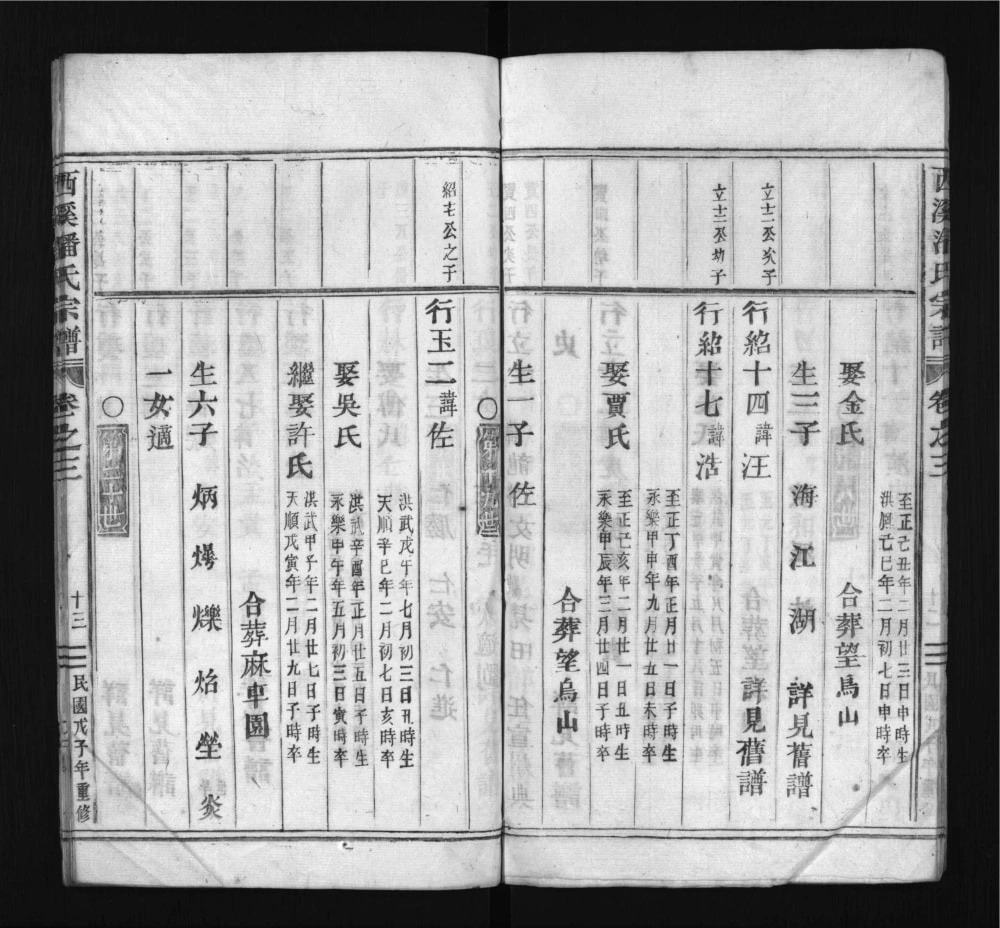 至正己丑年二月廿三日申時生
洪武己巳年二月初七日申時卒
娶金氏　合葬望烏山
生三子　海　江　湖　詳見舊譜
立十二公次子
行紹十四諱汪　詳見舊譜
立十二公幼子
行紹十七諱浩
至正丁酉年正月廿一日子時生
永樂甲申年九月廿五日未時卒
至正己亥年二月廿一日丑時生
永樂甲辰年三月廿四日子時卒
娶賈氏　合葬望烏山
生一子　佐
第十九世
紹十七公之子
行玉二諱佐
洪武戊午年七月初三日丑時生
天順辛巳年二月初七日亥時卒
娶吳氏
洪武辛酉年正月廿五日子時生
永樂甲午年五月初三日寅時卒
繼娶許氏
洪武甲子年二月廿七日子時生
天順戊寅年二月廿九日子時卒
合葬麻車園
生六子　炳　爗　爍　焰　瑩　炎
一女適
第二十世
西溪潘氏宗譜　卷之三　十三　民國戊子年重修